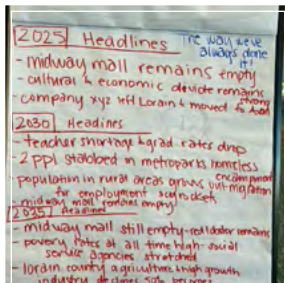 2025 Headlines
The way we've always done it!
- midway mall remains empty
- cultural & economic divide remains strong
- company xyz left Lorain & moved to
2030 Headlines
- teacher shortage & grad rates drop
- 2 ppl stabbed in metroparks homeless encampment
- population in rural areas grows out-migration
for employment skyrockets
- midway mall remains empty
2035 Headlines
- midway mall still empty - remains
- povery rates at all time high - social
service agencies stretched
- lorain county agriculture high growth
industry declines